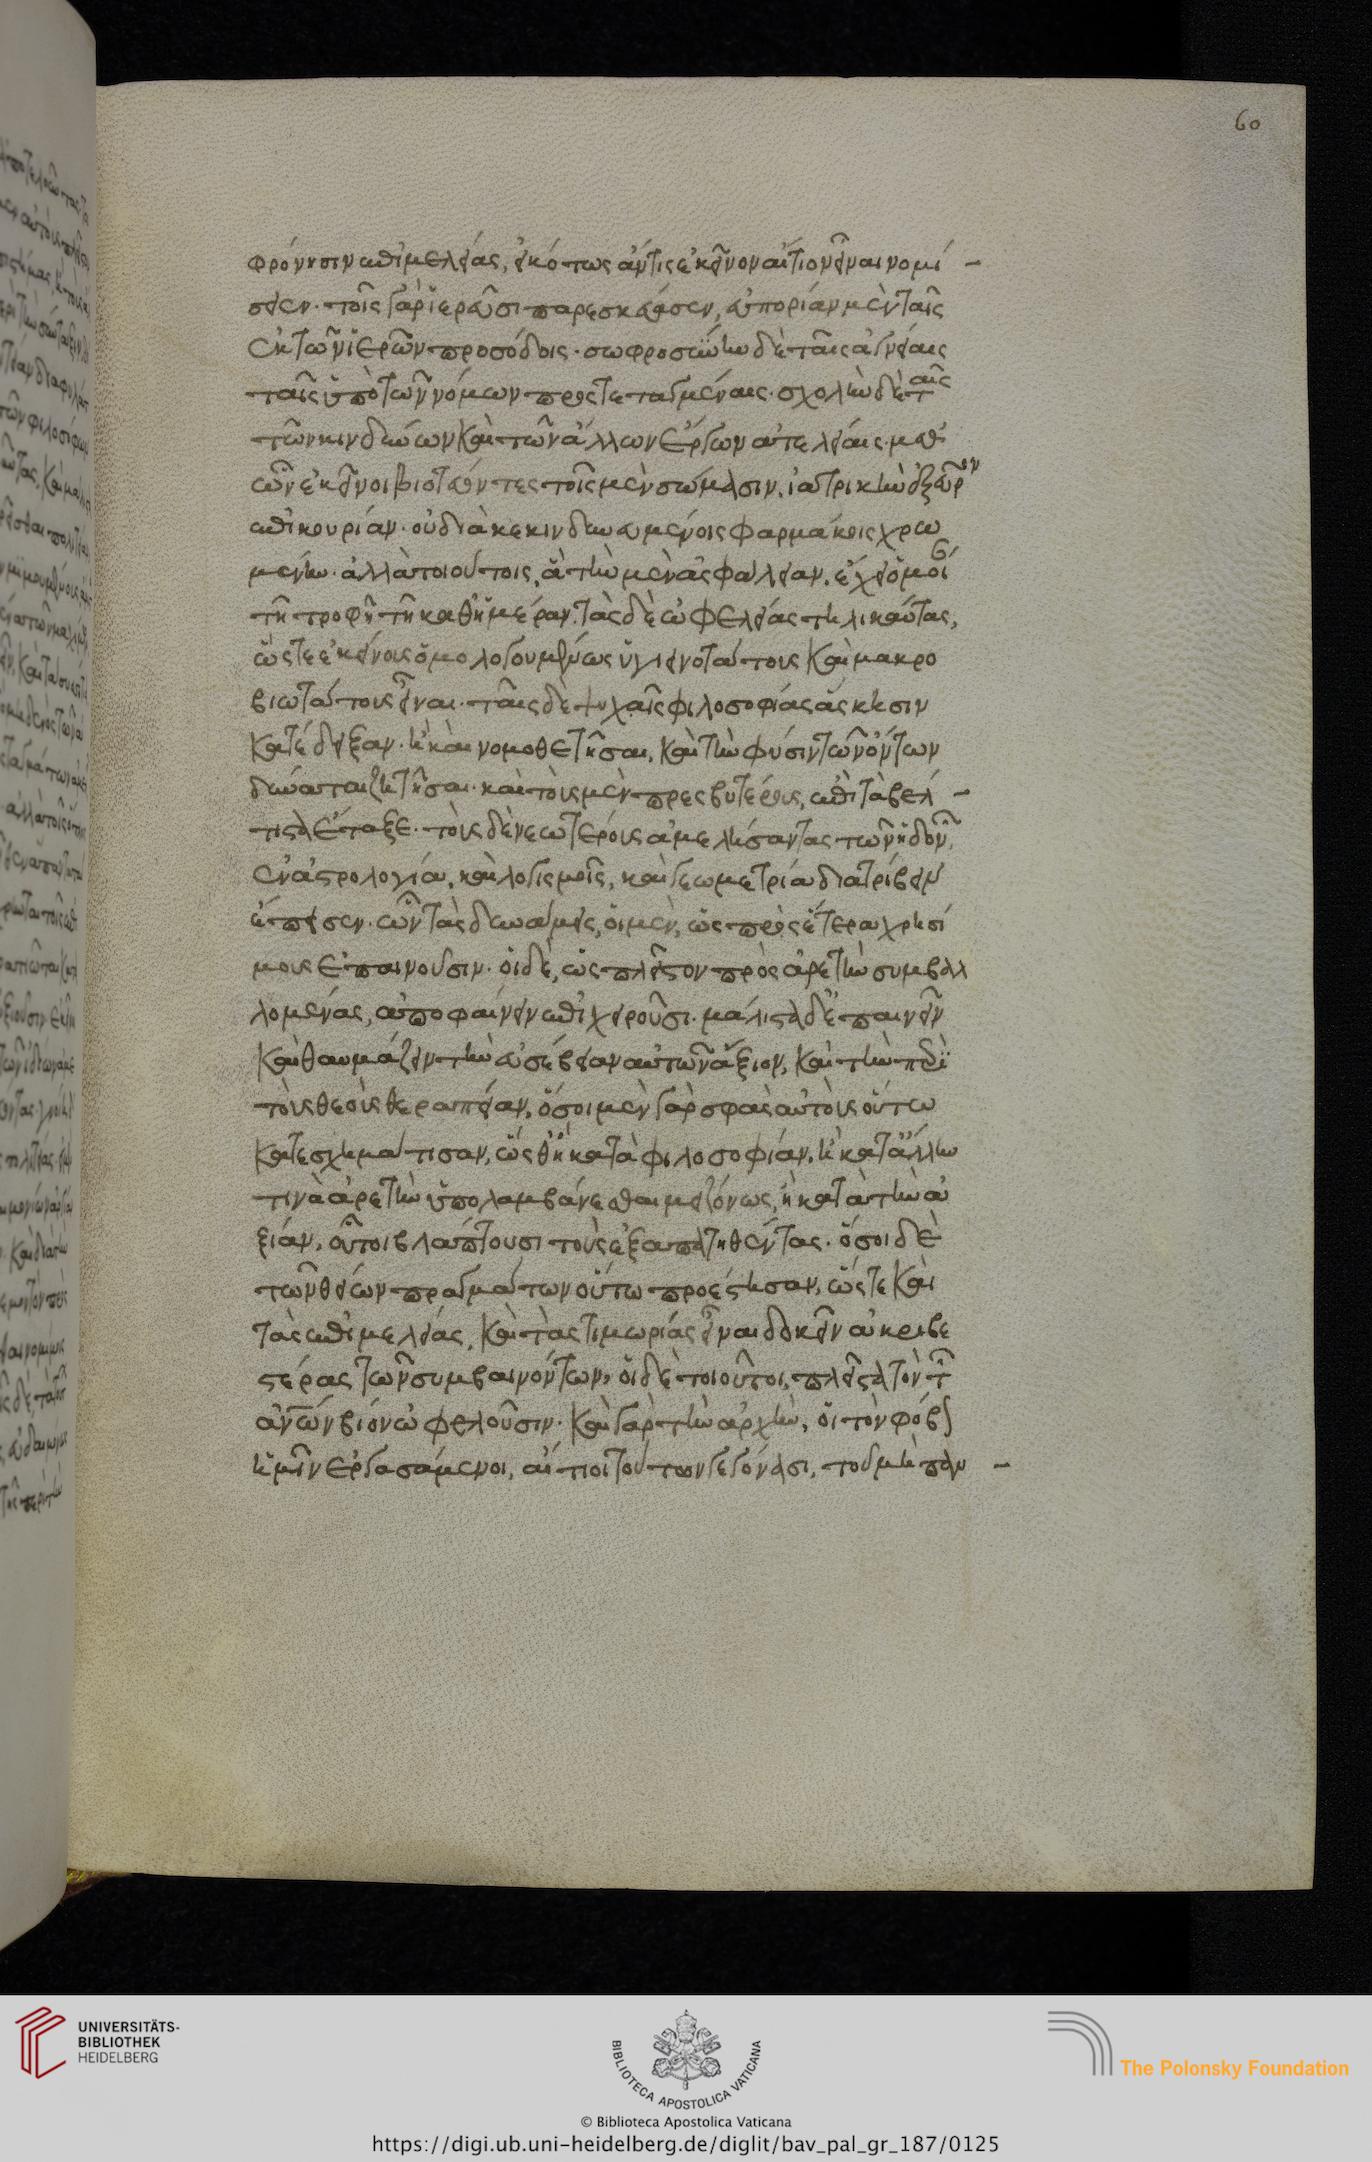 60
φρόνησιν ἐπιμελείας, εἰκότως ἄν τις ἐκεῖνον αἴτιον εἶναι νομί –
σειεν· τοῖς γὰρ ἱερεῦσι παρεσκεύασεν, εὐπορίαν μὲν ταῖς
ἐκ τῶν ἱερῶν προσόδοις· σωφροσύνην δὲ ταῖς ἁγνείαις
ταῖς ὑπὸ τῶν νόμων προστεταγμέναις· σχολὴν δὲ ταῖς
τῶν κινδύνων καὶ τῶν ἄλλων ἔργων ἀτελείαις· μεθ
ὧν ἐκεῖνοι βιοτεύοντες τοῖς μὲν σώμασιν, ἰατρικὴν ἐξεῦρον
ἐπικουρίαν· οὐ διακεκινδυνευμένοις φαρμάκοις χρω
μένην· ἀλλὰ τοιούτοις, ἃ τὴν μὲν ἀσφάλειαν, ἔχει ὁμοί
τῆ τροφῆ τῆ καθημέραν· τὰς δὲ ὠφελείας τηλικαύτας,
ὥστε ἐκείνους ὁμολογουμένως ὑγιεινοτάτους καὶ μακρο
βιωτάτους εἶναι· ταῖς δὲ ψυχαῖς φιλοσοφίας ἄσκησιν
κατέδειξαν· ἣ καὶ νομοθετῆσαι, καὶ τὴν φύσιν τῶν ὄντων
δύναται ζητῆσαι· καὶ τοὺς μὲν πρεσβυτέρους, ἐπὶ τὰ βελ –
τιστα ἔταξε· τοὺς δὲ νεωτέρους ἀμελήσαντας τῶν ἡδονῶν,
ἐν ἀστρολογία, καὶ λογισμοῖς, καὶ γεωμετρία διατρίβειν
ἔπεισεν· ὧν τὰς δυνάμεις, οἱ μὲν, ὡς πρὸς ἕτερα χρησί
μους ἐπαινοῦσιν· οἱ δὲ, ὡς πλεῖστον πρὸς ἀρετὴν συμβαλ
λομένας, ἀποφαίνειν ἐπιχειροῦσι· μάλιστα δ' ἐπαινεῖν
καὶ θαυμάζειν τὴν εὐσέβειαν αὐτῶν ἄξιον, καὶ τὴν περὶ
τοὺς θεοὺς θεραπείαν, ὅσοι μὲν γὰρ σφᾶς αὐτοὺς οὕτω
κατεσχημάτισαν, ὥσθ' ἢ κατὰ φιλοσοφίαν, ἢ κατ' ἄλλην
τινὰ ἀρετὴν ὑπολαμβάνεσθαι μειζόνως, ἢ κατὰ τὴν ἀ
ξίαν, οὗτοι βλάπτουσι τοὺς ἐξαπατηθέντας· ὅσοι δὲ
τῶν θείων πραγμάτων οὕτω προέστησαν, ὥστε καὶ
τὰς ἐπιμελείας, καὶ τὰς τιμωρίας εἶναι δοκεῖν ἀκριβε
στέρας τῶν συμβαινόντων, οἱ δὲ τοιοῦτοι, πλεῖστα τὸν τῶν
ανων βίον ὠφελοῦσιν· καὶ γὰρ τὴν ἀρχὴν, οἱ τὸν φόβον
ἡμῖν ἐργασάμενοι, αἴτιοι τούτων γεγόνασι, τοῦ μὴ παν –
UNIVERSITÄTS-
BIBLIOTHEK
HEIDELBERG
BIBLIOTECA APOSTOLICA VATICANA
The Polonsky Foundation
© Biblioteca Apostolica Vaticana
https://digi.ub.uni-heidelberg.de/diglit/bav_pal_gr_187/0125